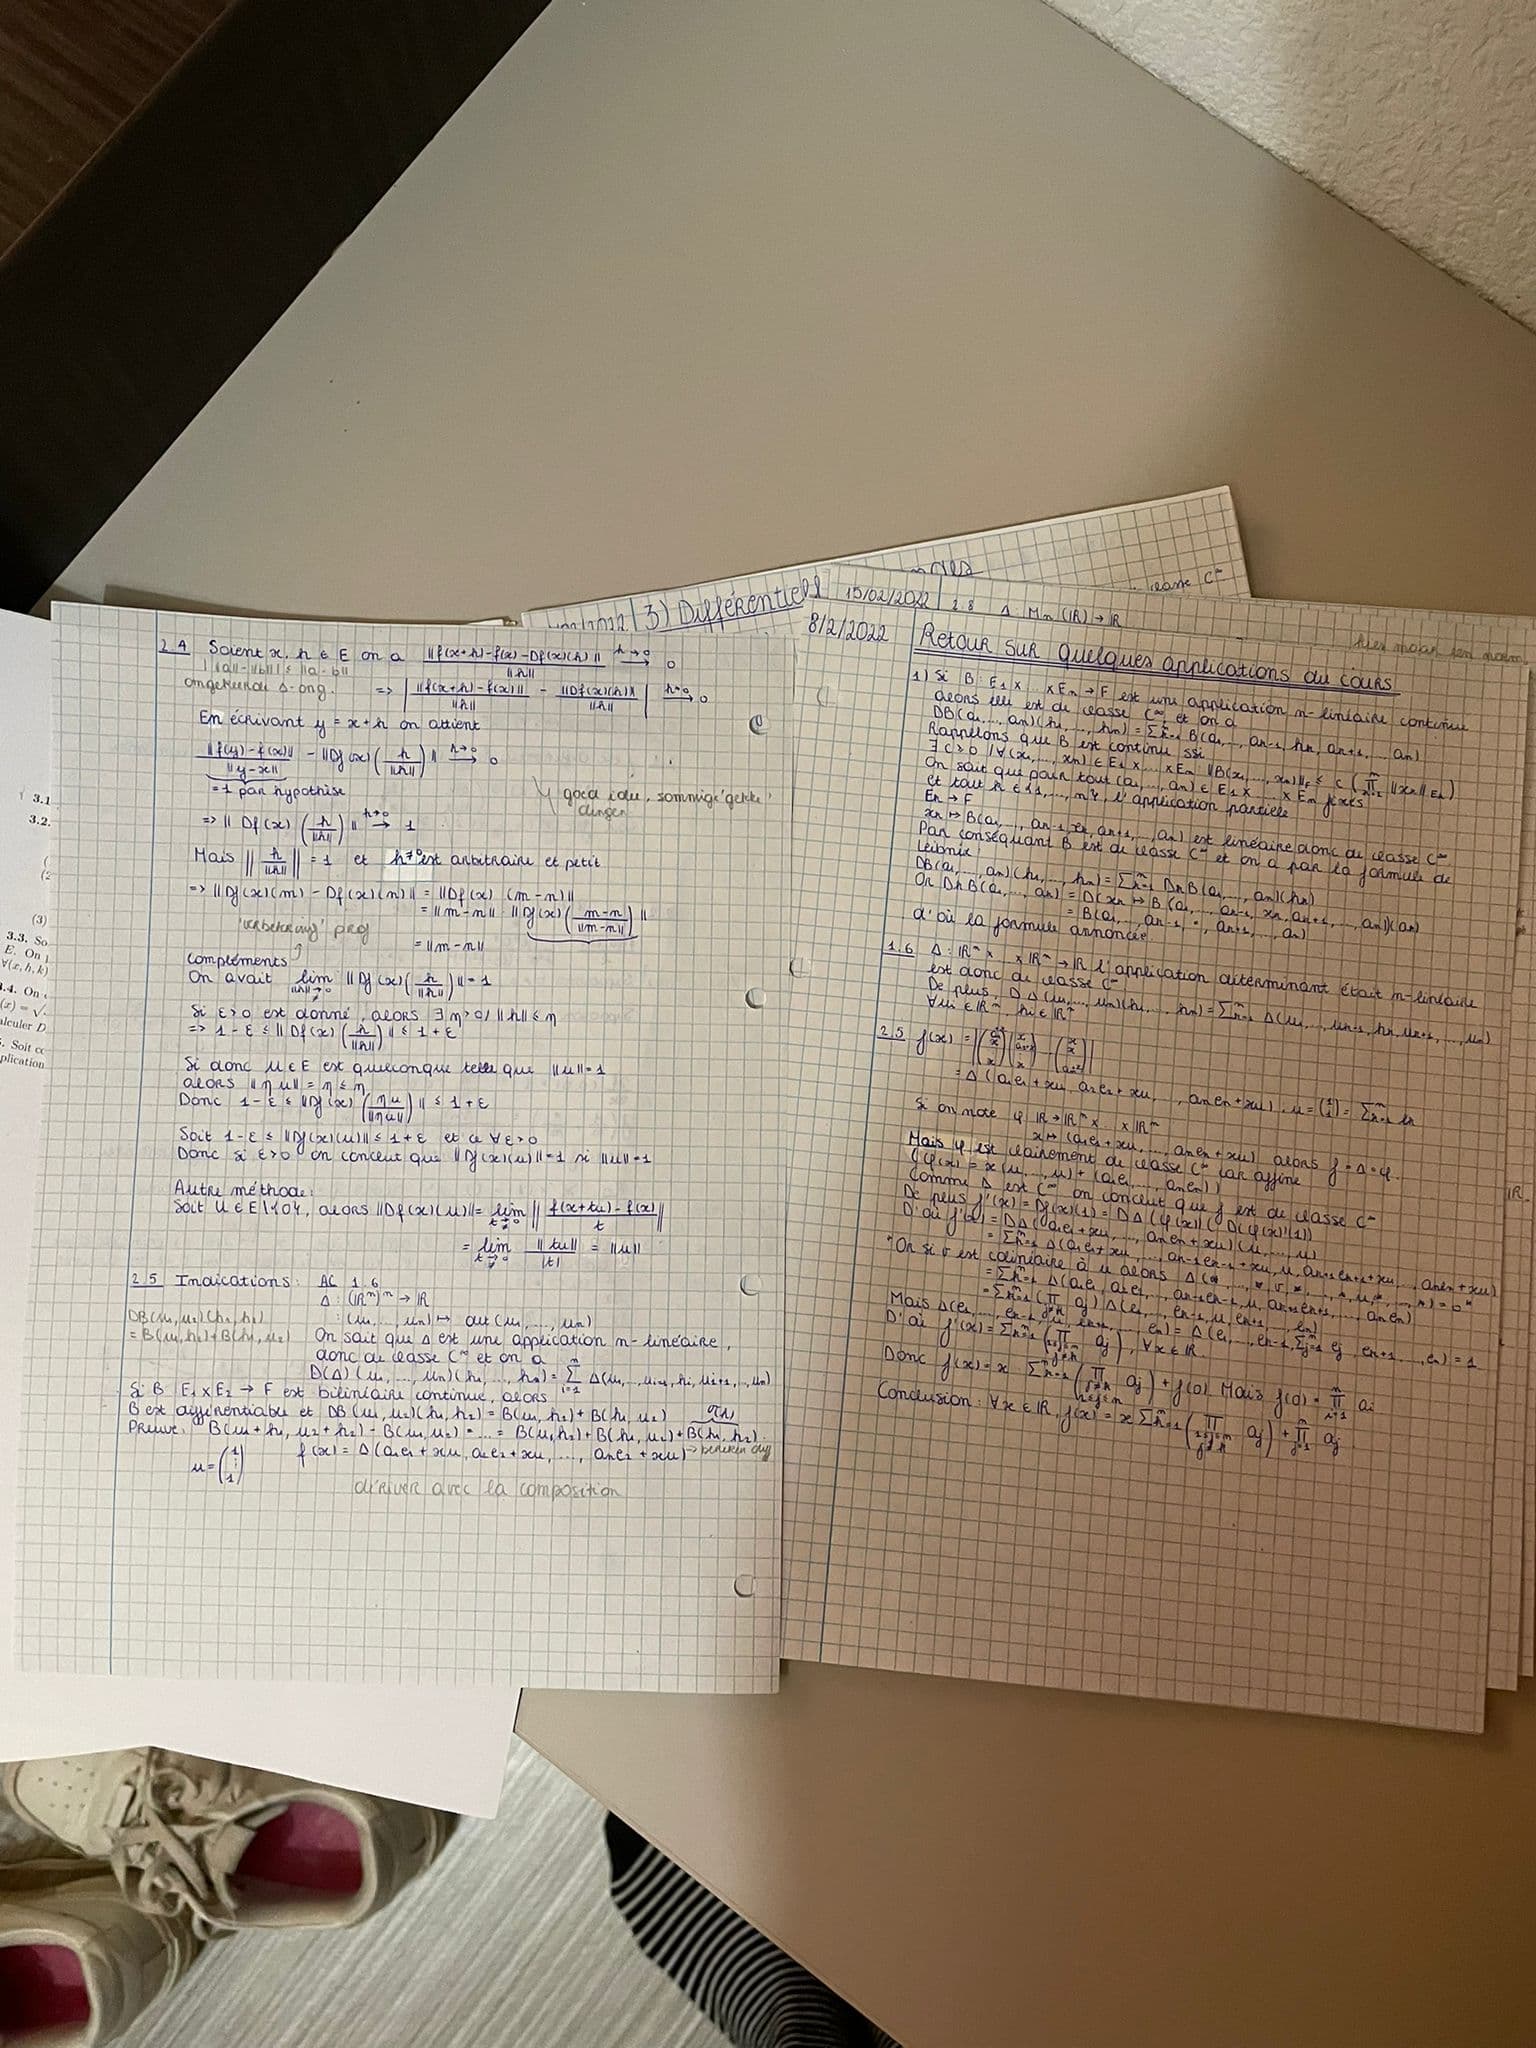 2.4 Soient x, h ∈ E on a ||f(x+h)-f(x)-Df(x)(h)|| / ||h|| →(h→0) 0
| ||a||-||b|| | ≤ ||a-b||
omgekeerde Δ-ong.
=> | ||f(x+h)-f(x)|| / ||h|| - ||Df(x)(h)|| / ||h|| | →(h→0) 0
En écrivant y = x+h on obtient
||f(y)-f(x)|| / ||y-x|| - ||Df(x)(h/||h||)|| →(h→0) 0
=1 par hypothèse
goed idee, sommige 'gekke'
dingen
=> || Df(x) (h/||h||) || →(h→0) 1
Mais || h/||h|| || = 1 et h≠0 est arbitraire et petit
=> ||Df(x)(m) - Df(x)(n)|| = ||Df(x) (m-n)||
= ||m-n|| ||Df(x) (m-n/||m-n||) ||
'verbetering' prof
= ||m-n||
Compléments
On avait lim ||Df(x)(h/||h||)|| = 1
Si ε>0 est donné, alors ∃ η>0 / ||h|| ≤ η
=> 1-ε ≤ ||Df(x) (h/||h||) || ≤ 1+ε
Si donc u ∈ E est quelconque telle que ||u||=1
alors ||η u|| = η ≤ η
Donc 1-ε ≤ ||Df(x) (ηu/||ηu||) || ≤ 1+ε
Soit 1-ε ≤ ||Df(x)(u)|| ≤ 1+ε et ce ∀ε>0
Donc si ε>0 on conclut que ||Df(x)(u)||=1 si ||u||=1
Autre méthode:
Soit u ∈ E\{0}, alors ||Df(x)(u)|| = lim || f(x+tu)-f(x) / t ||
= lim ||tu|| / |t| = ||u||
2.5 Indications: AC 1.6
Δ: (ℝⁿ)ⁿ → ℝ
: (u₁, ..., uₙ) ↦ det (u₁, ..., uₙ)
DB(u₁,u₂)(h₁,h₂)
= B(u₁,h₂)+B(h₁,u₂)
On sait que Δ est une application n-linéaire,
donc de classe C^∞ et on a
D(Δ)(u₁, ..., uₙ)(h₁, ..., hₙ) = Σ Δ(u₁, ..., uᵢ₋₁, hᵢ, uᵢ₊₁, ..., uₙ)
Si B E₁×E₂ → F est bilinéaire continue, alors
B est différentiable et DB(u₁,u₂)(h₁,h₂) = B(u₁,h₂)+B(h₁,u₂)
Preuve: B(u₁+h₁, u₂+h₂) - B(u₁,u₂) = ... = B(u₁,h₂)+B(h₁,u₂)+B(h₁,h₂).
f(x) = Δ(a₁e₁+xu, a₂e₂+xu, ..., aₙe₂+xu)
dériver avec la composition
3) Différentiel
15/02/2022
2.8 Δ: Mₙ(ℝ) → ℝ
classe C^∞
8/2/2022
Retour sur quelques applications du cours
1) Si B: E₁× ... ×Eₙ → F est une application n-linéaire continue
alors elle est de classe C^∞ et on a
DB(a₁, ..., aₙ)(h₁, ..., hₙ) = Σ B(a₁, ..., aₖ₋₁, hₖ, aₖ₊₁, ..., aₙ)
Rappelons que B est continue ssi
∃ c>0 / ∀(x₁, ..., xₙ) ∈ E₁× ... ×Eₙ ||B(x₁, ..., xₙ)||_F ≤ c (∏ ||xₖ||_Eₖ)
On sait que pour tout (a₁, ..., aₙ) ∈ E₁× ... ×Eₙ fixés
et tout k ∈ {1, ..., n}, l'application partielle
Eₖ → F
xₖ ↦ B(a₁, ..., aₖ₋₁, xₖ, aₖ₊₁, ..., aₙ) est linéaire donc de classe C^∞
Par conséquent B est de classe C^∞ et on a par la formule de
Leibniz
DB(a₁, ..., aₙ)(h₁, ..., hₙ) = Σ DₖB(a₁, ..., aₙ)(hₖ)
Or DₖB(a₁, ..., aₙ) = D(xₖ ↦ B(a₁, ..., aₖ₋₁, xₖ, aₖ₊₁, ..., aₙ))(aₖ)
= B(a₁, ..., aₖ₋₁, •, aₖ₊₁, ..., aₙ)
d'où la formule annoncée.
1.6 Δ: ℝⁿ× ... ×ℝⁿ → ℝ l'application déterminant était n-linéaire
est donc de classe C^∞
De plus DΔ(u₁, ..., uₙ)(h₁, ..., hₙ) = Σ Δ(u₁, ..., uₖ₋₁, hₖ, uₖ₊₁, ..., uₙ)
∀uᵢ ∈ ℝⁿ, hᵢ ∈ ℝⁿ
2.5 f(x) =
= Δ(a₁e₁+xu, a₂e₂+xu, ..., aₙeₙ+xu), u = Σ eₖ
Si on note φ ℝ → ℝⁿ× ... ×ℝⁿ
x ↦ (a₁e₁+xu, ..., aₙeₙ+xu) alors f = Δ∘φ.
Mais φ est clairement de classe C^∞ car affine
(φ(x) = x(u, ..., u) + (a₁e₁, ..., aₙeₙ))
Comme Δ est C^∞ on conclut que f est de classe C^∞
De plus f'(x) = Df(x)(1) = DΔ(φ(x))(Dφ(x)(1))
D'où f'(x) = DΔ(a₁e₁+xu, ..., aₙeₙ+xu)(u, ..., u)
= Σ Δ(a₁e₁+xu, ..., aₖ₋₁eₖ₋₁+xu, u, aₖ₊₁eₖ₊₁+xu, ..., aₙeₙ+xu)
"Or si v est colinéaire à u alors Δ(*, ..., *, v, *, ..., *, u, *, ..., *) = 0"
= Σ Δ(a₁e₁, a₂e₂, ..., aₖ₋₁eₖ₋₁, u, aₖ₊₁eₖ₊₁, ..., aₙeₙ)
= Σ (∏ aⱼ) Δ(e₁, ..., eₖ₋₁, u, eₖ₊₁, ..., eₙ)
Mais Δ(e₁, ..., eₖ₋₁, u, eₖ₊₁, ..., eₙ) = Δ(e₁, ..., eₖ₋₁, Σ eⱼ, eₖ₊₁, ..., eₙ) = 1
D'où f'(x) = Σ (∏ aⱼ), ∀x ∈ ℝ.
Donc f(x) = x Σ (∏ aⱼ) + f(0). Mais f(0) = ∏ aᵢ
Conclusion: ∀x ∈ ℝ, f(x) = x Σ (∏ aⱼ) + ∏ aⱼ
3.1
3.2.
(3)
3.3. So
E. On
∀(x, h, k)
.4. On
(x) = √
alculer D
. Soit
plication